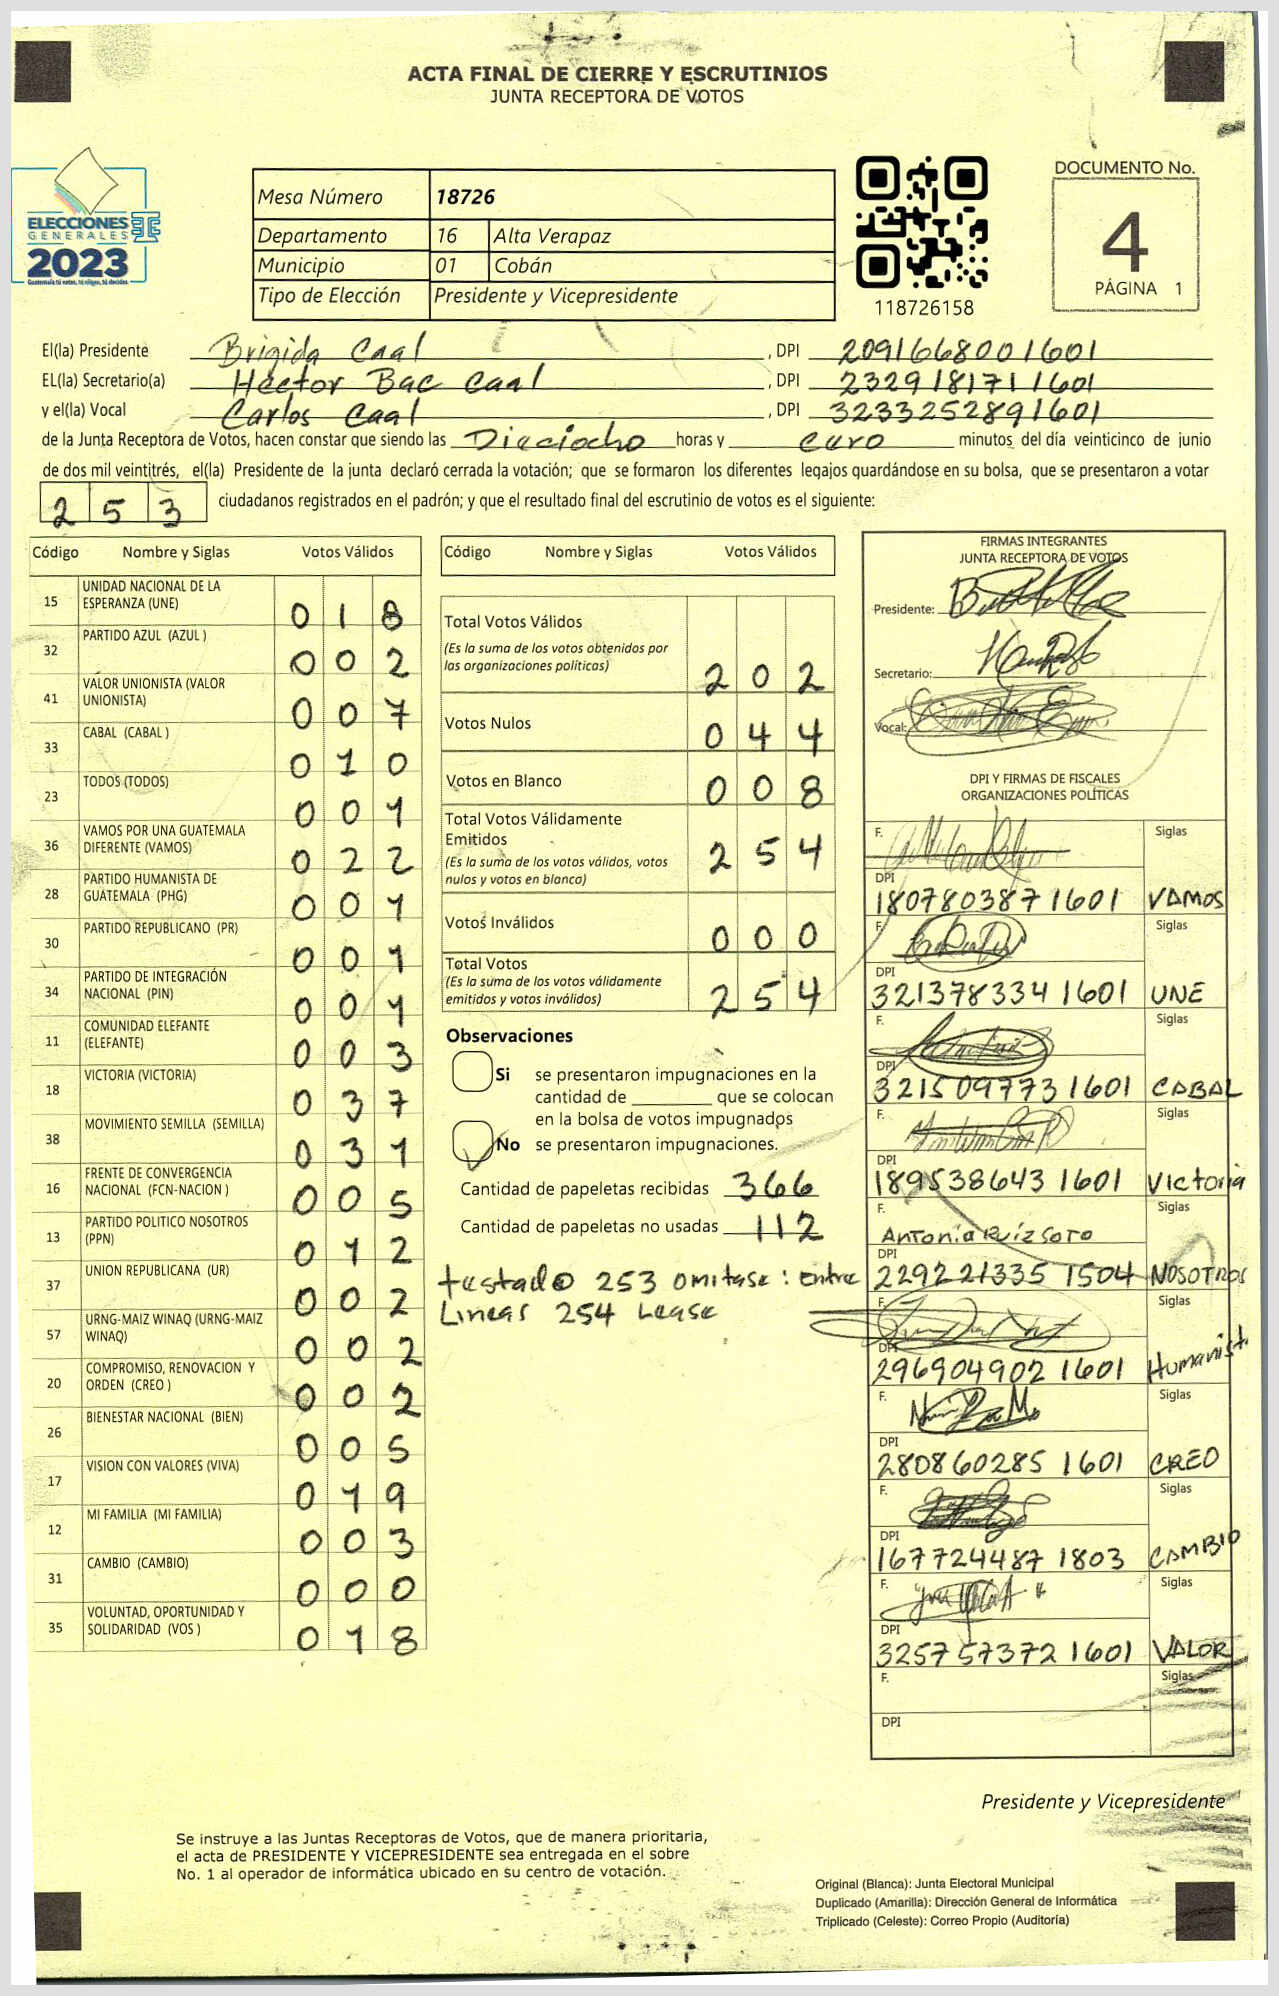 ACTA FINAL DE CIERRE Y ESCRUTINIOS
JUNTA RECEPTORA DE VOTOS
ELECCIONES
GENERALES
2023
Guatemala tú votas, tú eliges, tú decides
Mesa Número 18726
Departamento 16 Alta Verapaz
Municipio 01 Cobán
Tipo de Elección Presidente y Vicepresidente
118726158
DOCUMENTO No.
4
PÁGINA 1
El(la) Presidente Brigida Caal , DPI 2091668001601
EL(la) Secretario(a) Héctor Bac Caal , DPI 2329181711601
y el(la) Vocal Carlos Caal , DPI 3233252891601
de la Junta Receptora de Votos, hacen constar que siendo las Dieciocho horas y cero minutos del día veinticinco de junio
de dos mil veintitrés, el(la) Presidente de la junta declaró cerrada la votación; que se formaron los diferentes legajos quardándose en su bolsa, que se presentaron a votar
253 ciudadanos registrados en el padrón; y que el resultado final del escrutinio de votos es el siguiente:
Código Nombre y Siglas Votos Válidos
15 UNIDAD NACIONAL DE LA ESPERANZA (UNE) 018
32 PARTIDO AZUL (AZUL ) 002
41 VALOR UNIONISTA (VALOR UNIONISTA) 007
33 CABAL (CABAL ) 010
23 TODOS (TODOS) 001
36 VAMOS POR UNA GUATEMALA DIFERENTE (VAMOS) 022
28 PARTIDO HUMANISTA DE GUATEMALA (PHG) 001
30 PARTIDO REPUBLICANO (PR) 001
34 PARTIDO DE INTEGRACIÓN NACIONAL (PIN) 001
11 COMUNIDAD ELEFANTE (ELEFANTE) 003
18 VICTORIA (VICTORIA) 037
38 MOVIMIENTO SEMILLA (SEMILLA) 031
16 FRENTE DE CONVERGENCIA NACIONAL (FCN-NACION ) 005
13 PARTIDO POLITICO NOSOTROS (PPN) 012
37 UNION REPUBLICANA (UR) 002
57 URNG-MAIZ WINAQ (URNG-MAIZ WINAQ) 002
20 COMPROMISO, RENOVACION Y ORDEN (CREO ) 002
26 BIENESTAR NACIONAL (BIEN) 005
17 VISION CON VALORES (VIVA) 019
12 MI FAMILIA (MI FAMILIA) 003
31 CAMBIO (CAMBIO) 000
35 VOLUNTAD, OPORTUNIDAD Y SOLIDARIDAD (VOS ) 018
Código Nombre y Siglas Votos Válidos
Total Votos Válidos
(Es la suma de los votos obtenidos por
las organizaciones políticas) 202
Votos Nulos 044
Votos en Blanco 008
Total Votos Válidamente
Emitidos
(Es la suma de los votos válidos, votos
nulos y votos en blanca) 254
Votos Inválidos 000
Total Votos
(Es la suma de los votos válidamente
emitidos y votos inválidos) 254
Observaciones
Si se presentaron impugnaciones en la
cantidad de que se colocan
en la bolsa de votos impugnados
No se presentaron impugnaciones.
Cantidad de papeletas recibidas 366
Cantidad de papeletas no usadas 112
testado 253 omitase: Entre
Lineas 254 Lease
FIRMAS INTEGRANTES
JUNTA RECEPTORA DE VOTOS
Presidente:
Secretario:
Vocal:
DPI Y FIRMAS DE FISCALES
ORGANIZACIONES POLÍTICAS
F. Siglas
DPI
180780387 1601 VAMOS
F. Siglas
DPI
321378334 1601 UNE
F. Siglas
DPI
321509773 1601 CABAL
F. Siglas
DPI
189538643 1601 Victoria
F. Siglas
Antonia Ruíz Soto
DPI
229221335 1504 NOSOTROS
F. Siglas
DPI
296904902 1601 Humanist
F. Siglas
DPI
280860285 1601 CREO
F. Siglas
DPI
167724487 1803 CAMBIO
F. Siglas
DPI
325757372 1601 VALOR
F. Siglas
DPI
Presidente y Vicepresidente
Se instruye a las Juntas Receptoras de Votos, que de manera prioritaria,
el acta de PRESIDENTE Y VICEPRESIDENTE sea entregada en el sobre
No. 1 al operador de informática ubicado en su centro de votación.
Original (Blanca): Junta Electoral Municipal
Duplicado (Amarilla): Dirección General de Informática
Triplicado (Celeste): Correo Propio (Auditoría)